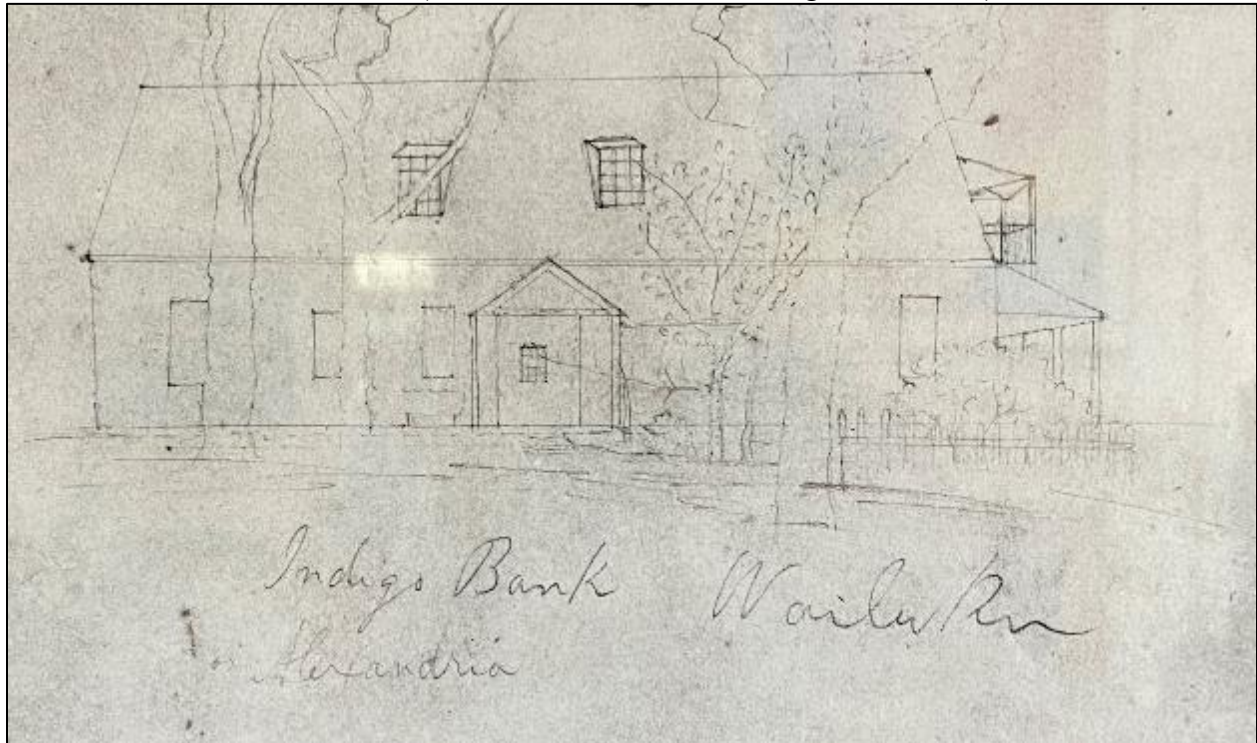 Indigo Bank Wailuku
or Alexandria